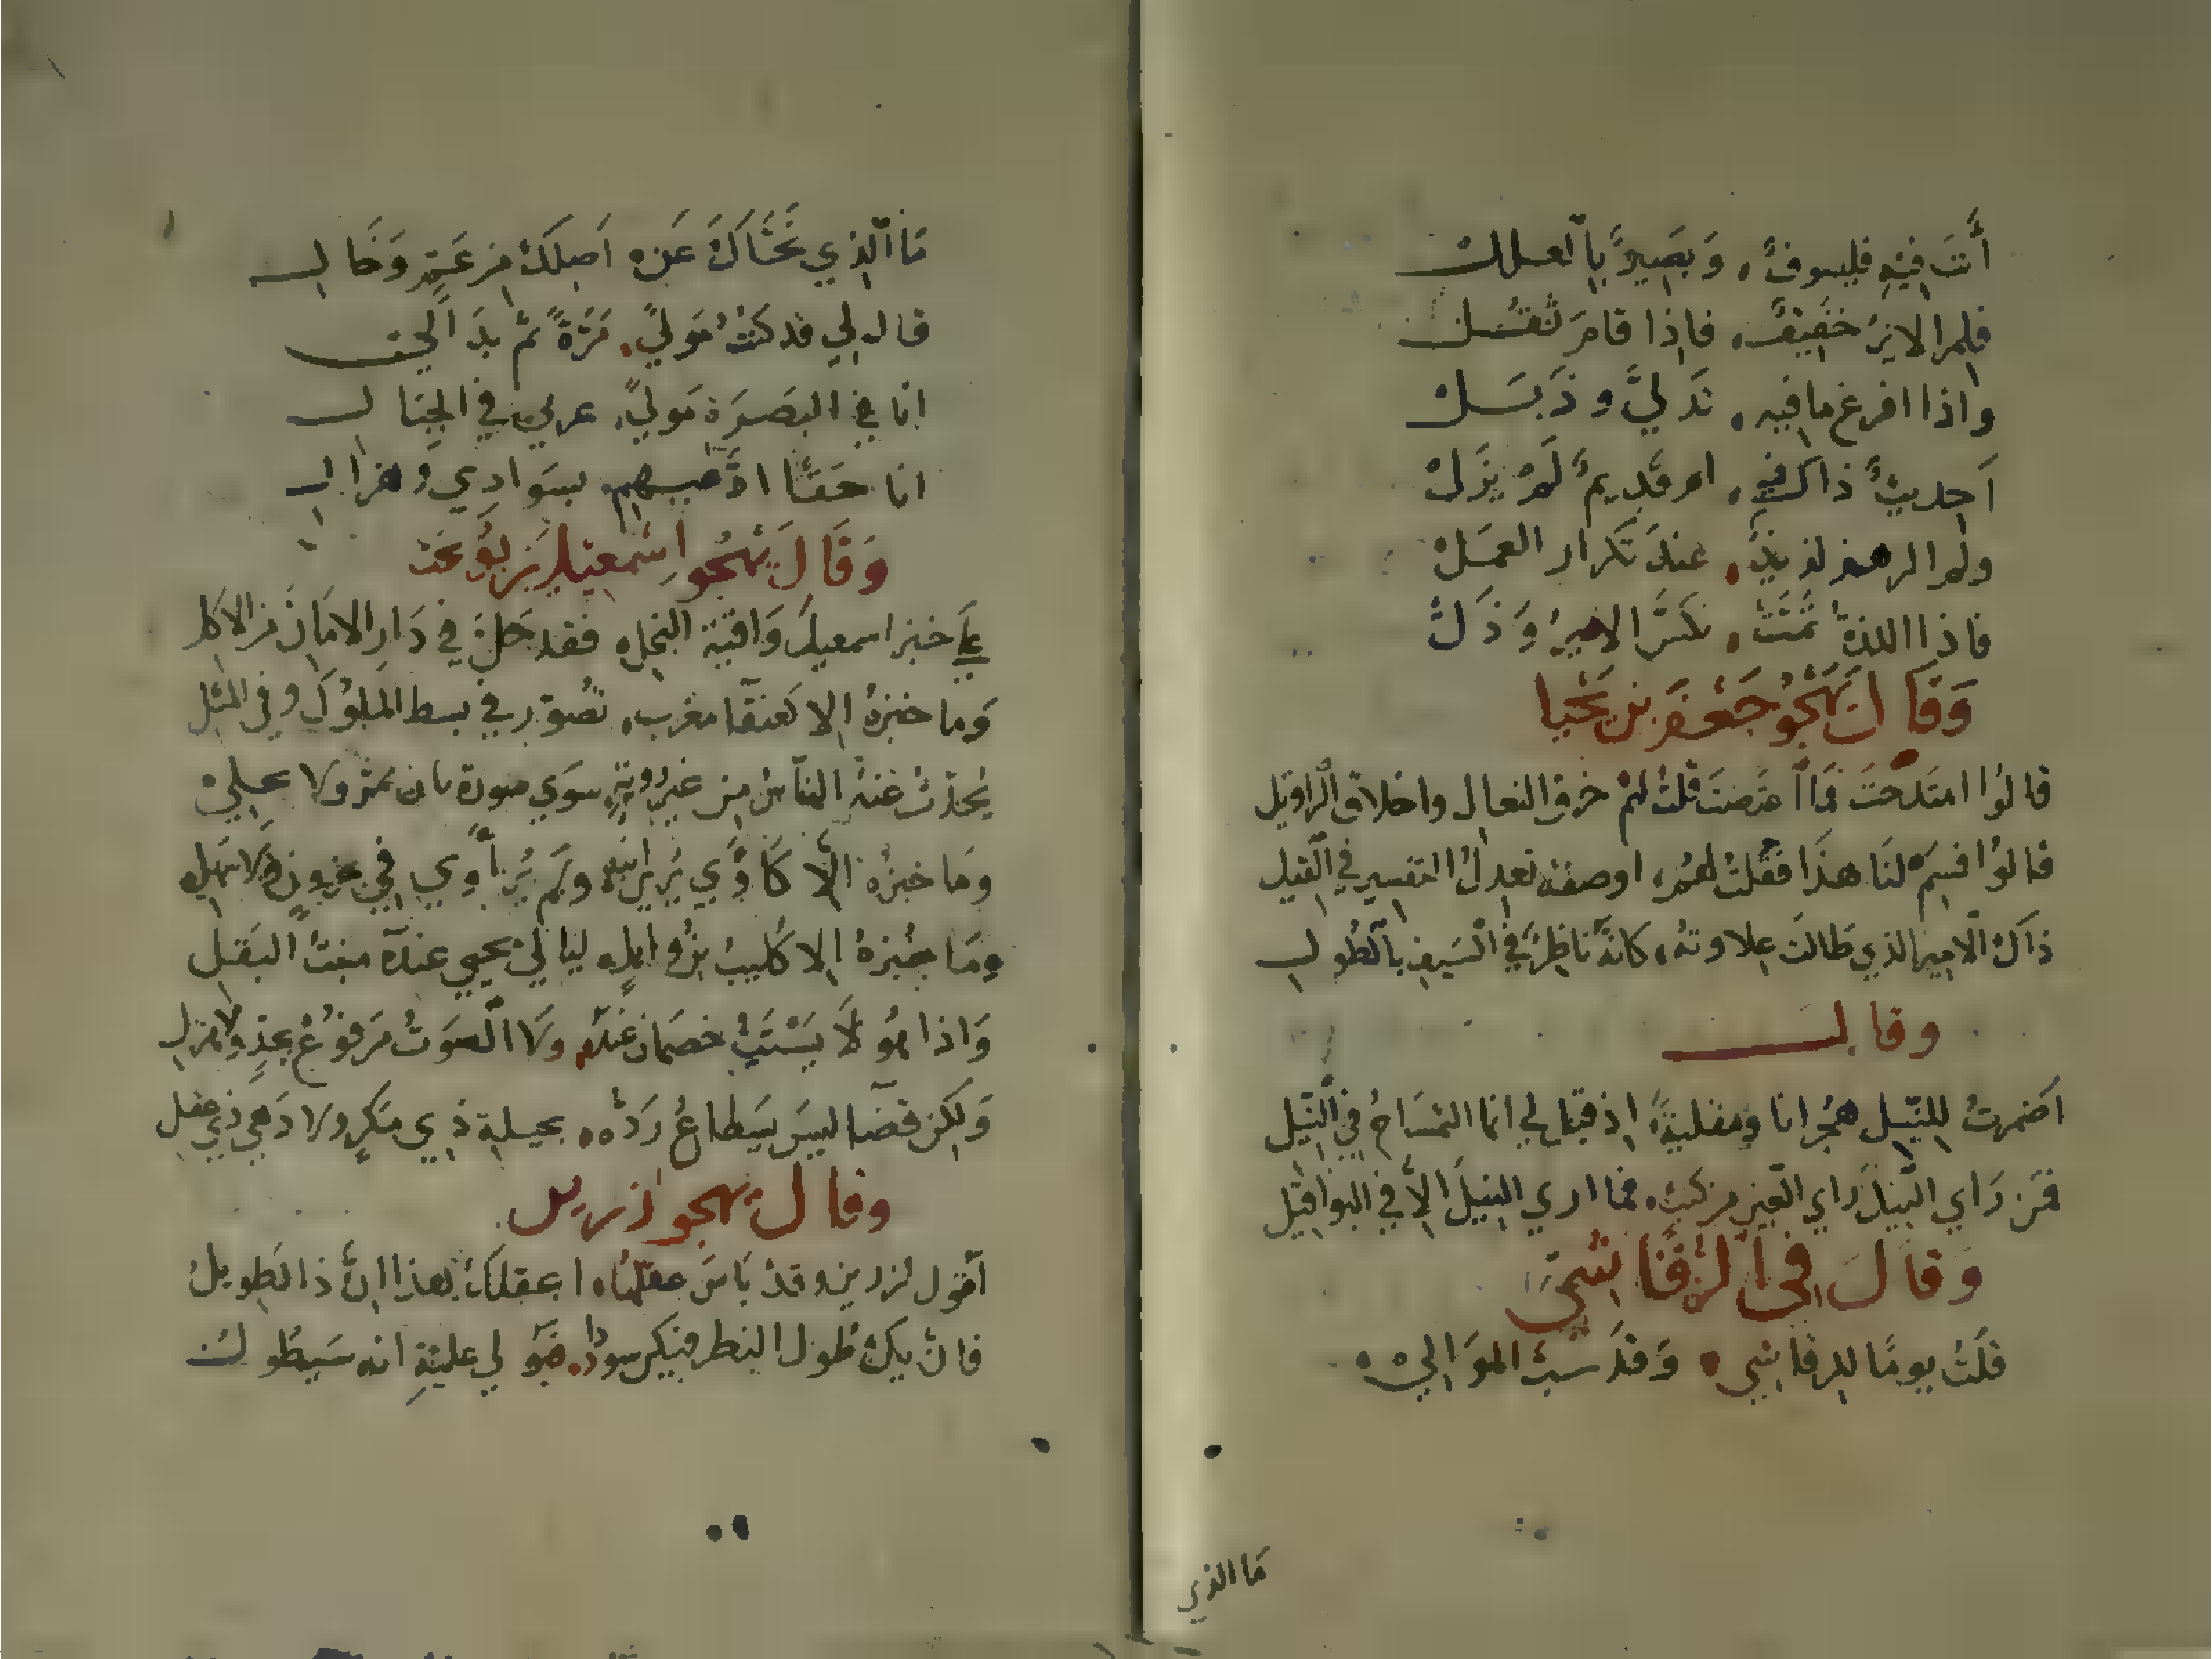 أنتَ فيهِ فليسوفٌ، وَبَصِيرٌ بِالعلل
فلم الايرُ خفيفٌ، فاذا قامَ ثقُل
واذا افرغ ما فيه، تدليَّ وذبَل
اَحديثٌ ذاك فيهِ، ام قديمٌ لمْ يزلْ
ولم الرهز لذيذٌ، عندَ تكرار العمَلْ
فاذا اللذةُ تمتْ، نكسَّ الايرُ وَذَلّ
وَقَالَ يَهْجُو جَعْفَرَ بن يحْيا
قالوُا امتدَحتَ فمَا اَعتَضتَ قلتُ لهمْ خرق النعال واخلاق السراويل
قالوُا فسِمّ لنَا هذَا فقُلتُ لهُم، او صفه تعدِلُ التفسير في القيل
ذاكَ الاَمير الذي طالت علاوتهُ، كانهُ ناظرٌ في السَيف بالطُول
وقال
اَضمرتُ للنّيل هُجرانا ومقليةً، اِذ قيلَ لي انما التمسَاحُ في النّيل
فمَن رَاي النّيلَ رَاي العَين من كثبٍ، فما اري النيلَ اِلاَّ في البواقيل
وَقالَ في الرَّقَاشيّ
قلتُ يومًا للرقاشي، وَقَد سَبّ الموَالِيْ
مَا الذي
مَا الذي نحَّاكَ عَن، اَصلكْ من عَمٍّ وَخَال
قال لِي قد كنتُ مَوليً، مَرَّةً ثم بدَا لِي
انا في البصَرة مَوليً، عربيٌ في الجبَال
انا حَقًّا ادَّعيهم بسَوادِي وهزالِ
وَقَالَ يَهجُو اِسْمعيلَ بن نَوبخت
عَلَي خبز اسمعيلَ وَاقية البُخل، فقد حَلَّ في دَارِ الامَان من الاكل
وَما خبزهُ الا كعنقَا مغرب، تصُوّر في بسط الملوُك وفي المثل
يُحدّث عنهُ النّاس مِن غير رويَةٍ، سوَي صورة ما ان تمرّ ولا تحلِي
ومَا خبزُه الاَّ كآوَي يُرَي ابنه، ولم يُرَ آوَي في حزونٍ ولا سَهلِ
ومَا خبزهُ الا كُليبُ بن وايلٍ، ليالي يحمي عزّه منبتَ البَقلِ
وَاذا هُو لاَ يَستبُّ خصمَان عندهُ، ولا الصَوتُ مَرفوعٌ بجدٍ ولا هزل
وَلكن قضَا ليسَ يسَطاعُ ردّه، بحيلة ذي مَكرٍ ولا دَهي ذي عقل
وقال يهجو زريں
اَقول لزرين وقد بَاسَ عقلهَا، ا عقلكَ هذا ان ذا لطويلُ
فان يك طُول البظر منكِ سوددا، ضو لي عليهِ انه سَيطُول